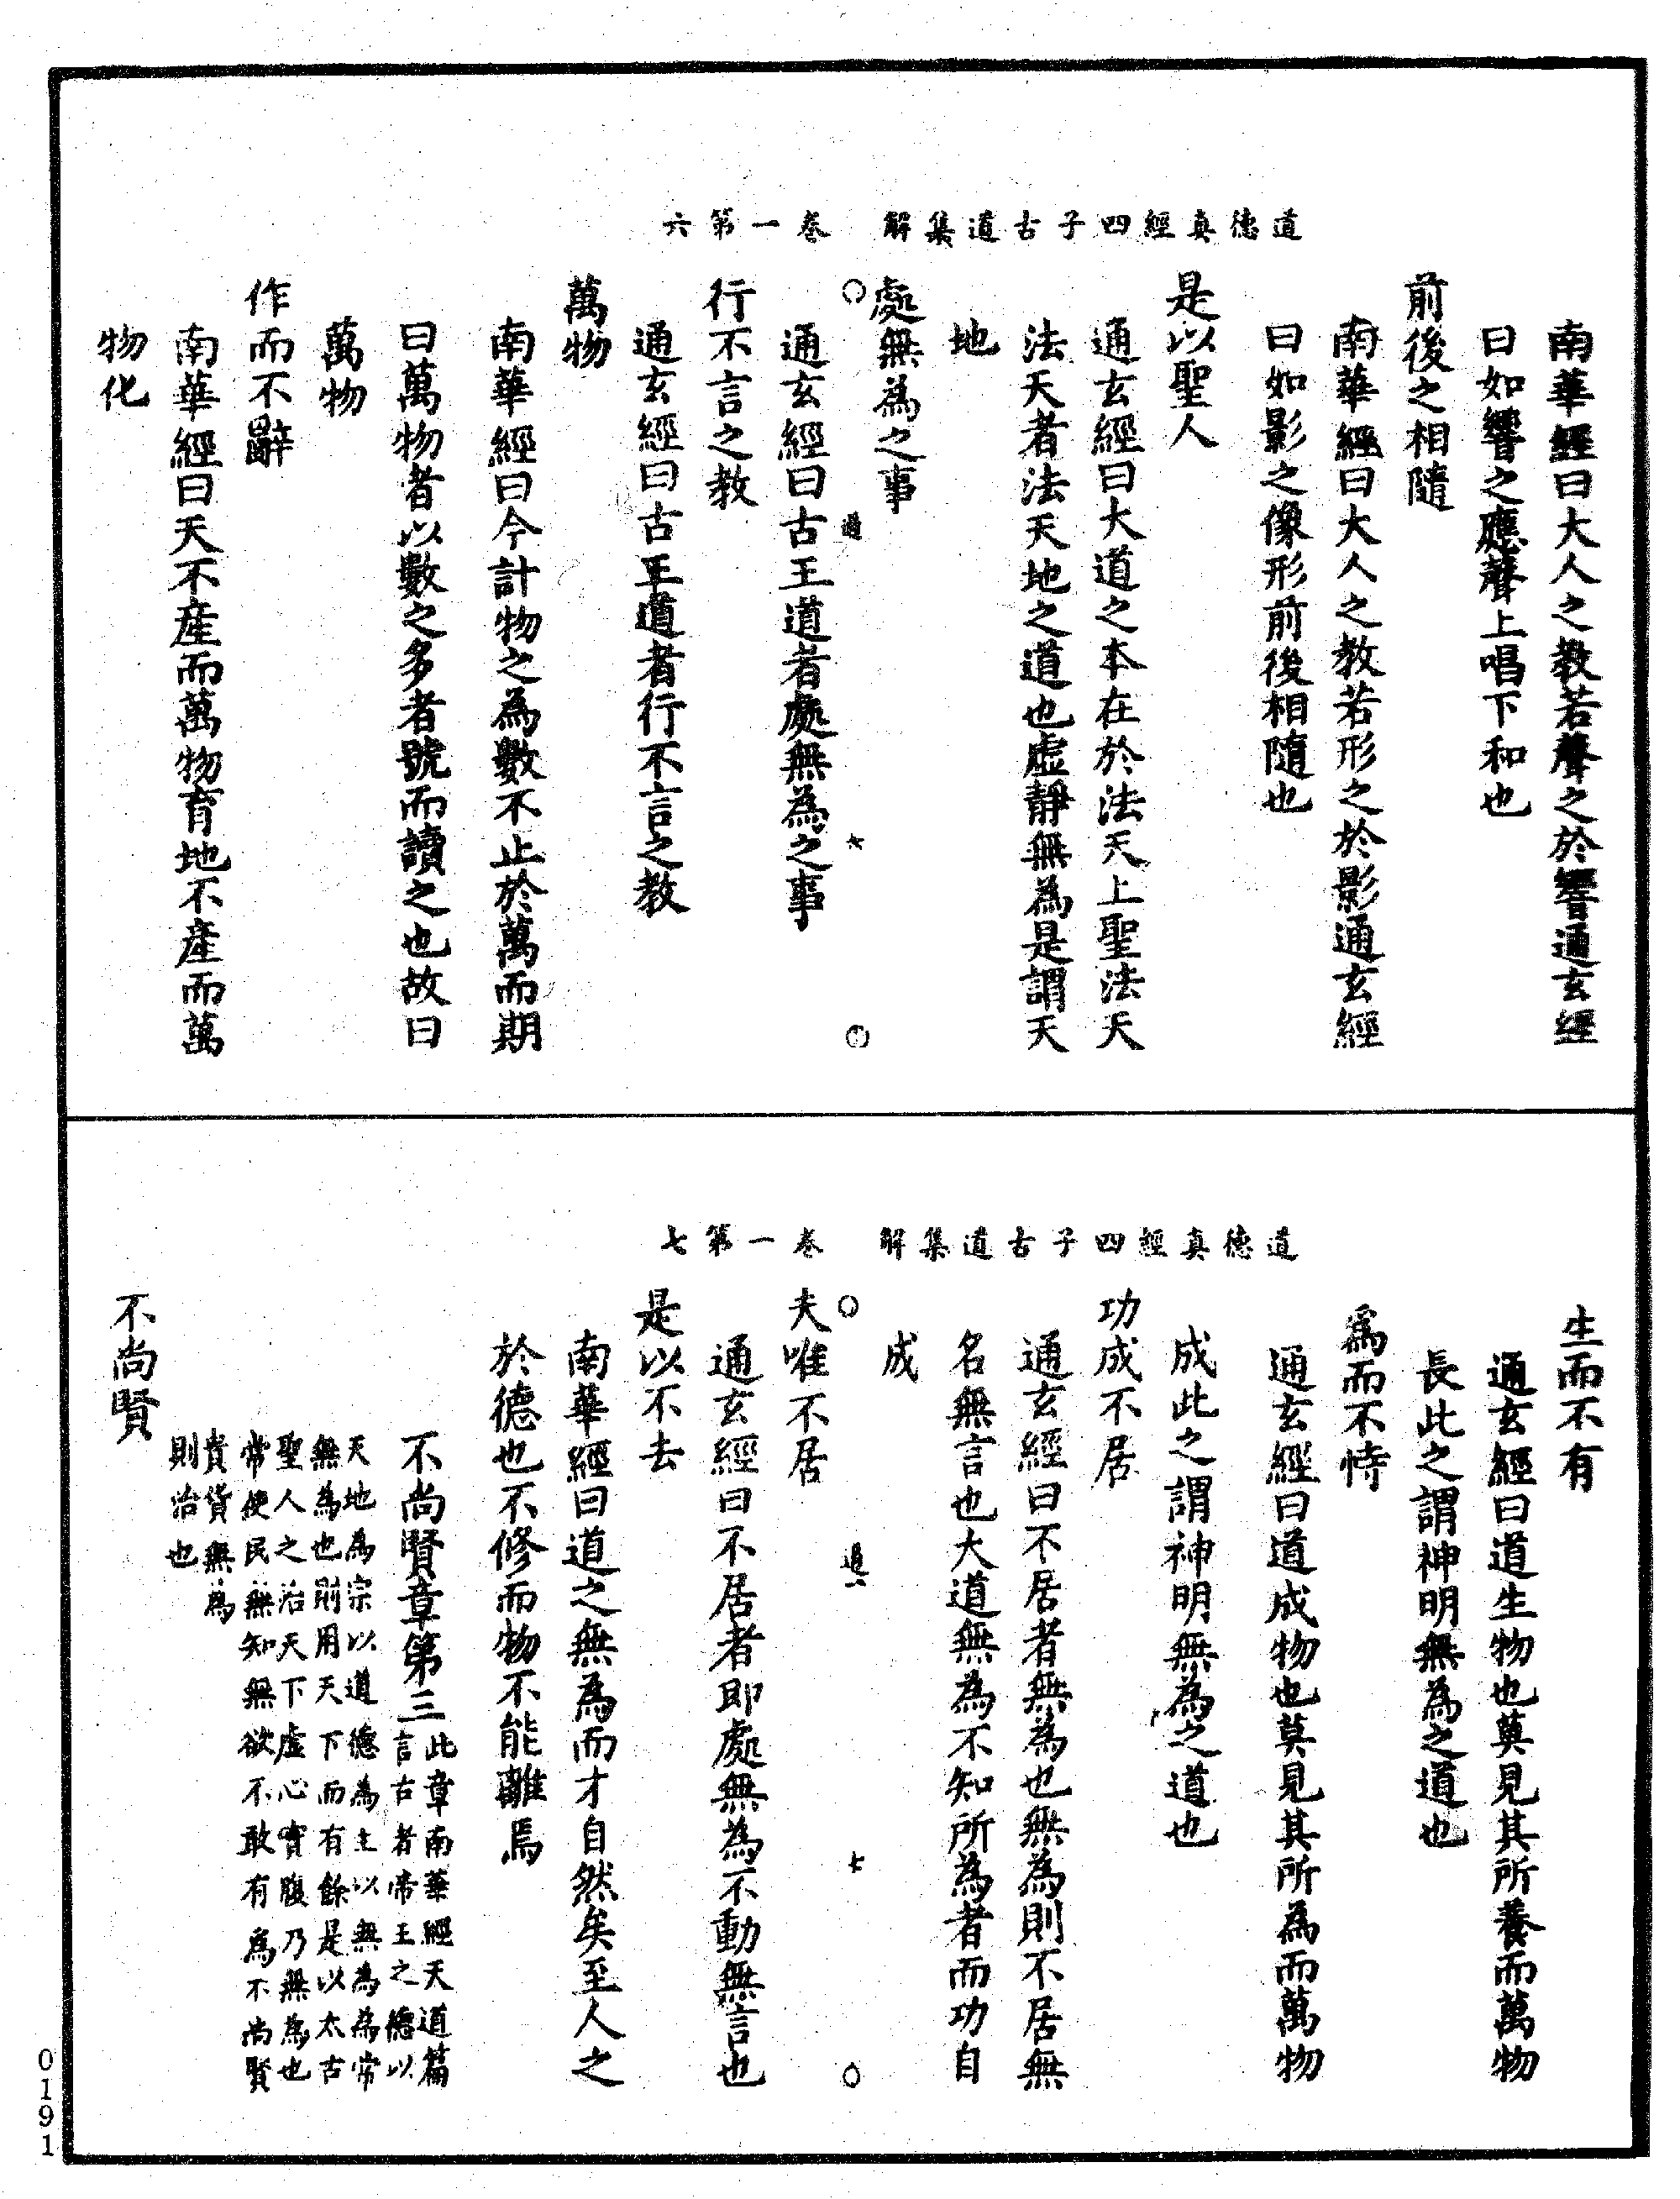 道德真經四子古道集解　卷一第六
南華經曰大人之教若聲之於響通玄經
曰如響之應聲上唱下和也
前後之相隨
南華經曰大人之教若形之於影通玄經
曰如影之像形前後相隨也
是以聖人
通玄經曰大道之本在於法天上聖法天
法天者法天地之道也虛靜無為是謂天
地
處無為之事
六
通玄經曰古王道者處無為之事
行不言之教
通玄經曰古王道者行不言之教
萬物
南華經曰今計物之為數不止於萬而期
曰萬物者以數之多者號而讀之也故曰
萬物
作而不辭
南華經曰天不産而萬物育地不産而萬
物化
道德真經四子古道集解　卷一第七
生而不有
通玄經曰道生物也莫見其所養而萬物
長此之謂神明無為之道也
為而不恃
通玄經曰道成物也莫見其所為而萬物
成此之謂神明無為之道也
功成不居
通玄經曰不居者無為也無為則不居無
名無言也大道無為不知所為者而功自
成
七
夫唯不居
通玄經曰不居者即處無為不動無言也
是以不去
南華經曰道之無為而才自然矣至人之
於德也不修而物不能離焉
不尚賢章第三
此章南華經天道篇
言古者帝王之德以
天地為宗以道德為主以無為為常
無為也則用天下而有餘是以太古
聖人之治天下虛心實腹乃無為也
常使民無知無欲不敢有為不尚賢
貴貨無為
則治也
不尚賢
0191